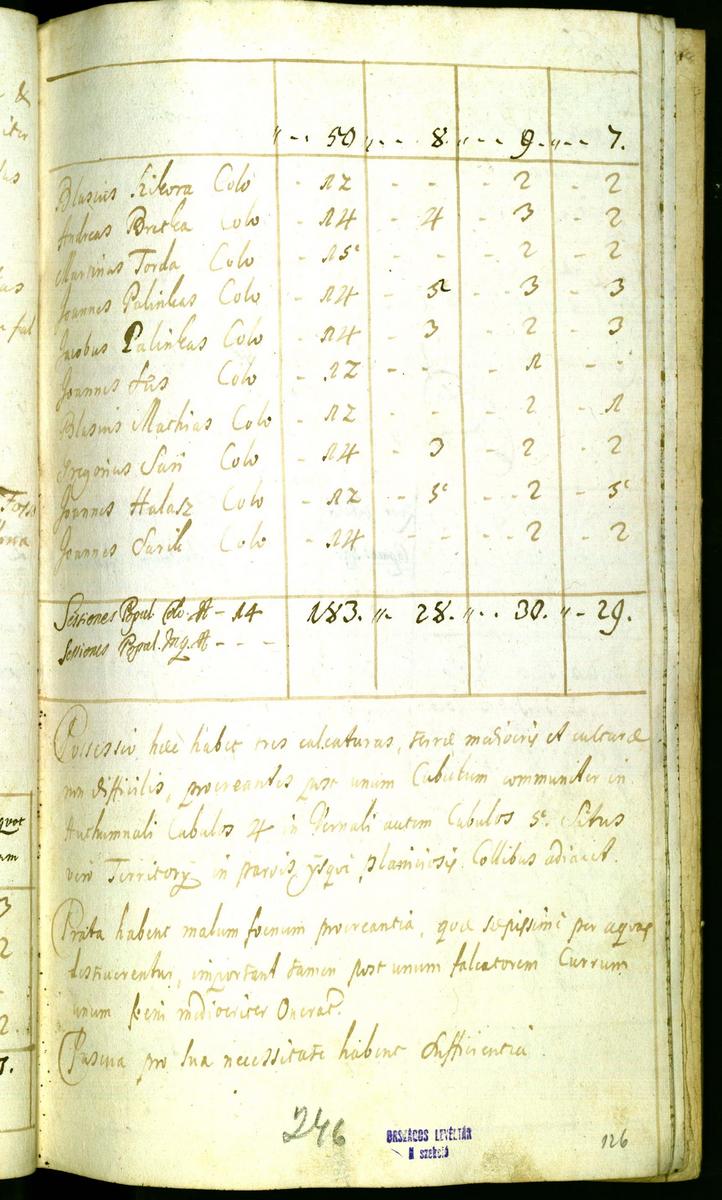 " - - 50 " - - 8. " - - 9. " - - 7.
Blasius Kikora Colo - 12 - - - 2 - 2
Andreas Bretka Colo - 14 - 4 - 3 - 2
Martinus Torda Colo - 15 - - - 2 - 2
Joannes Palinkas Colo - 14 - 5 - 3 - 3
Jacobus Palinkas Colo - 14 - 3 - 2 - 3
Joannes Colo - 12 - - - 1 - -
Blasius Mathias Colo - 12 - - - 2 - 1
Gregorius Suri Colo - 14 - 3 - 2 - 2
Joannes Halasz Colo - 12 - 5 - 2 - 5
Joannes Colo - 14 - - - 2 - 2
Sessiones Popul. Colo. - 14 183. " - 28. " - - 30. " - 29.
Sessiones Popul. Inq. - - -
Possessio haec habet tres calcaturas, terrae mediocris et culturae
non difficilis, procreantes post unum Cubulum communiter in
Authumnali Cubulos 4 in Vernali autem Cubulos 5. Situs
vero Territorij in parvis ijsque planiciosis Collibus adiacet.
Prata habent malum foenum procreantia, quae saepissime per aquas
destruerentur, important tamen post unum falcatorem Currum
unum feni mediocriter Onerat.
Pascua pro sua necessitate habent Sufficientia
246
ORSZÁGOS LEVÉLTÁR
N szekció
126